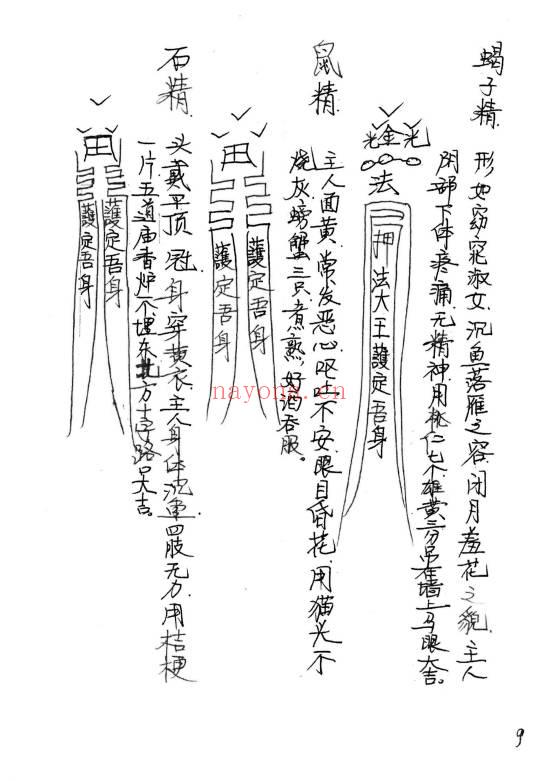 蝎子精
形如窈窕淑女沉鱼落雁之容闭月羞花之貌主人
阴部下体疼痛无精神用桃仁七个雄黄三分吊在墙上马眼大吉。
金光
法
押法大王護定吾身
鼠精
主人面黄常发恶心呕吐不安眼目昏花用猫头不
烧灰螃蟹三只煮熟好酒吞服。
田
護定吾身
護定吾身
石精
头戴平顶冠身穿黄衣主人身体沉重四肢无力用桔梗
一片五道庙香炉个埋东北方十字路口大吉。
田
護定吾身
護定吾身
nayona.cn
9